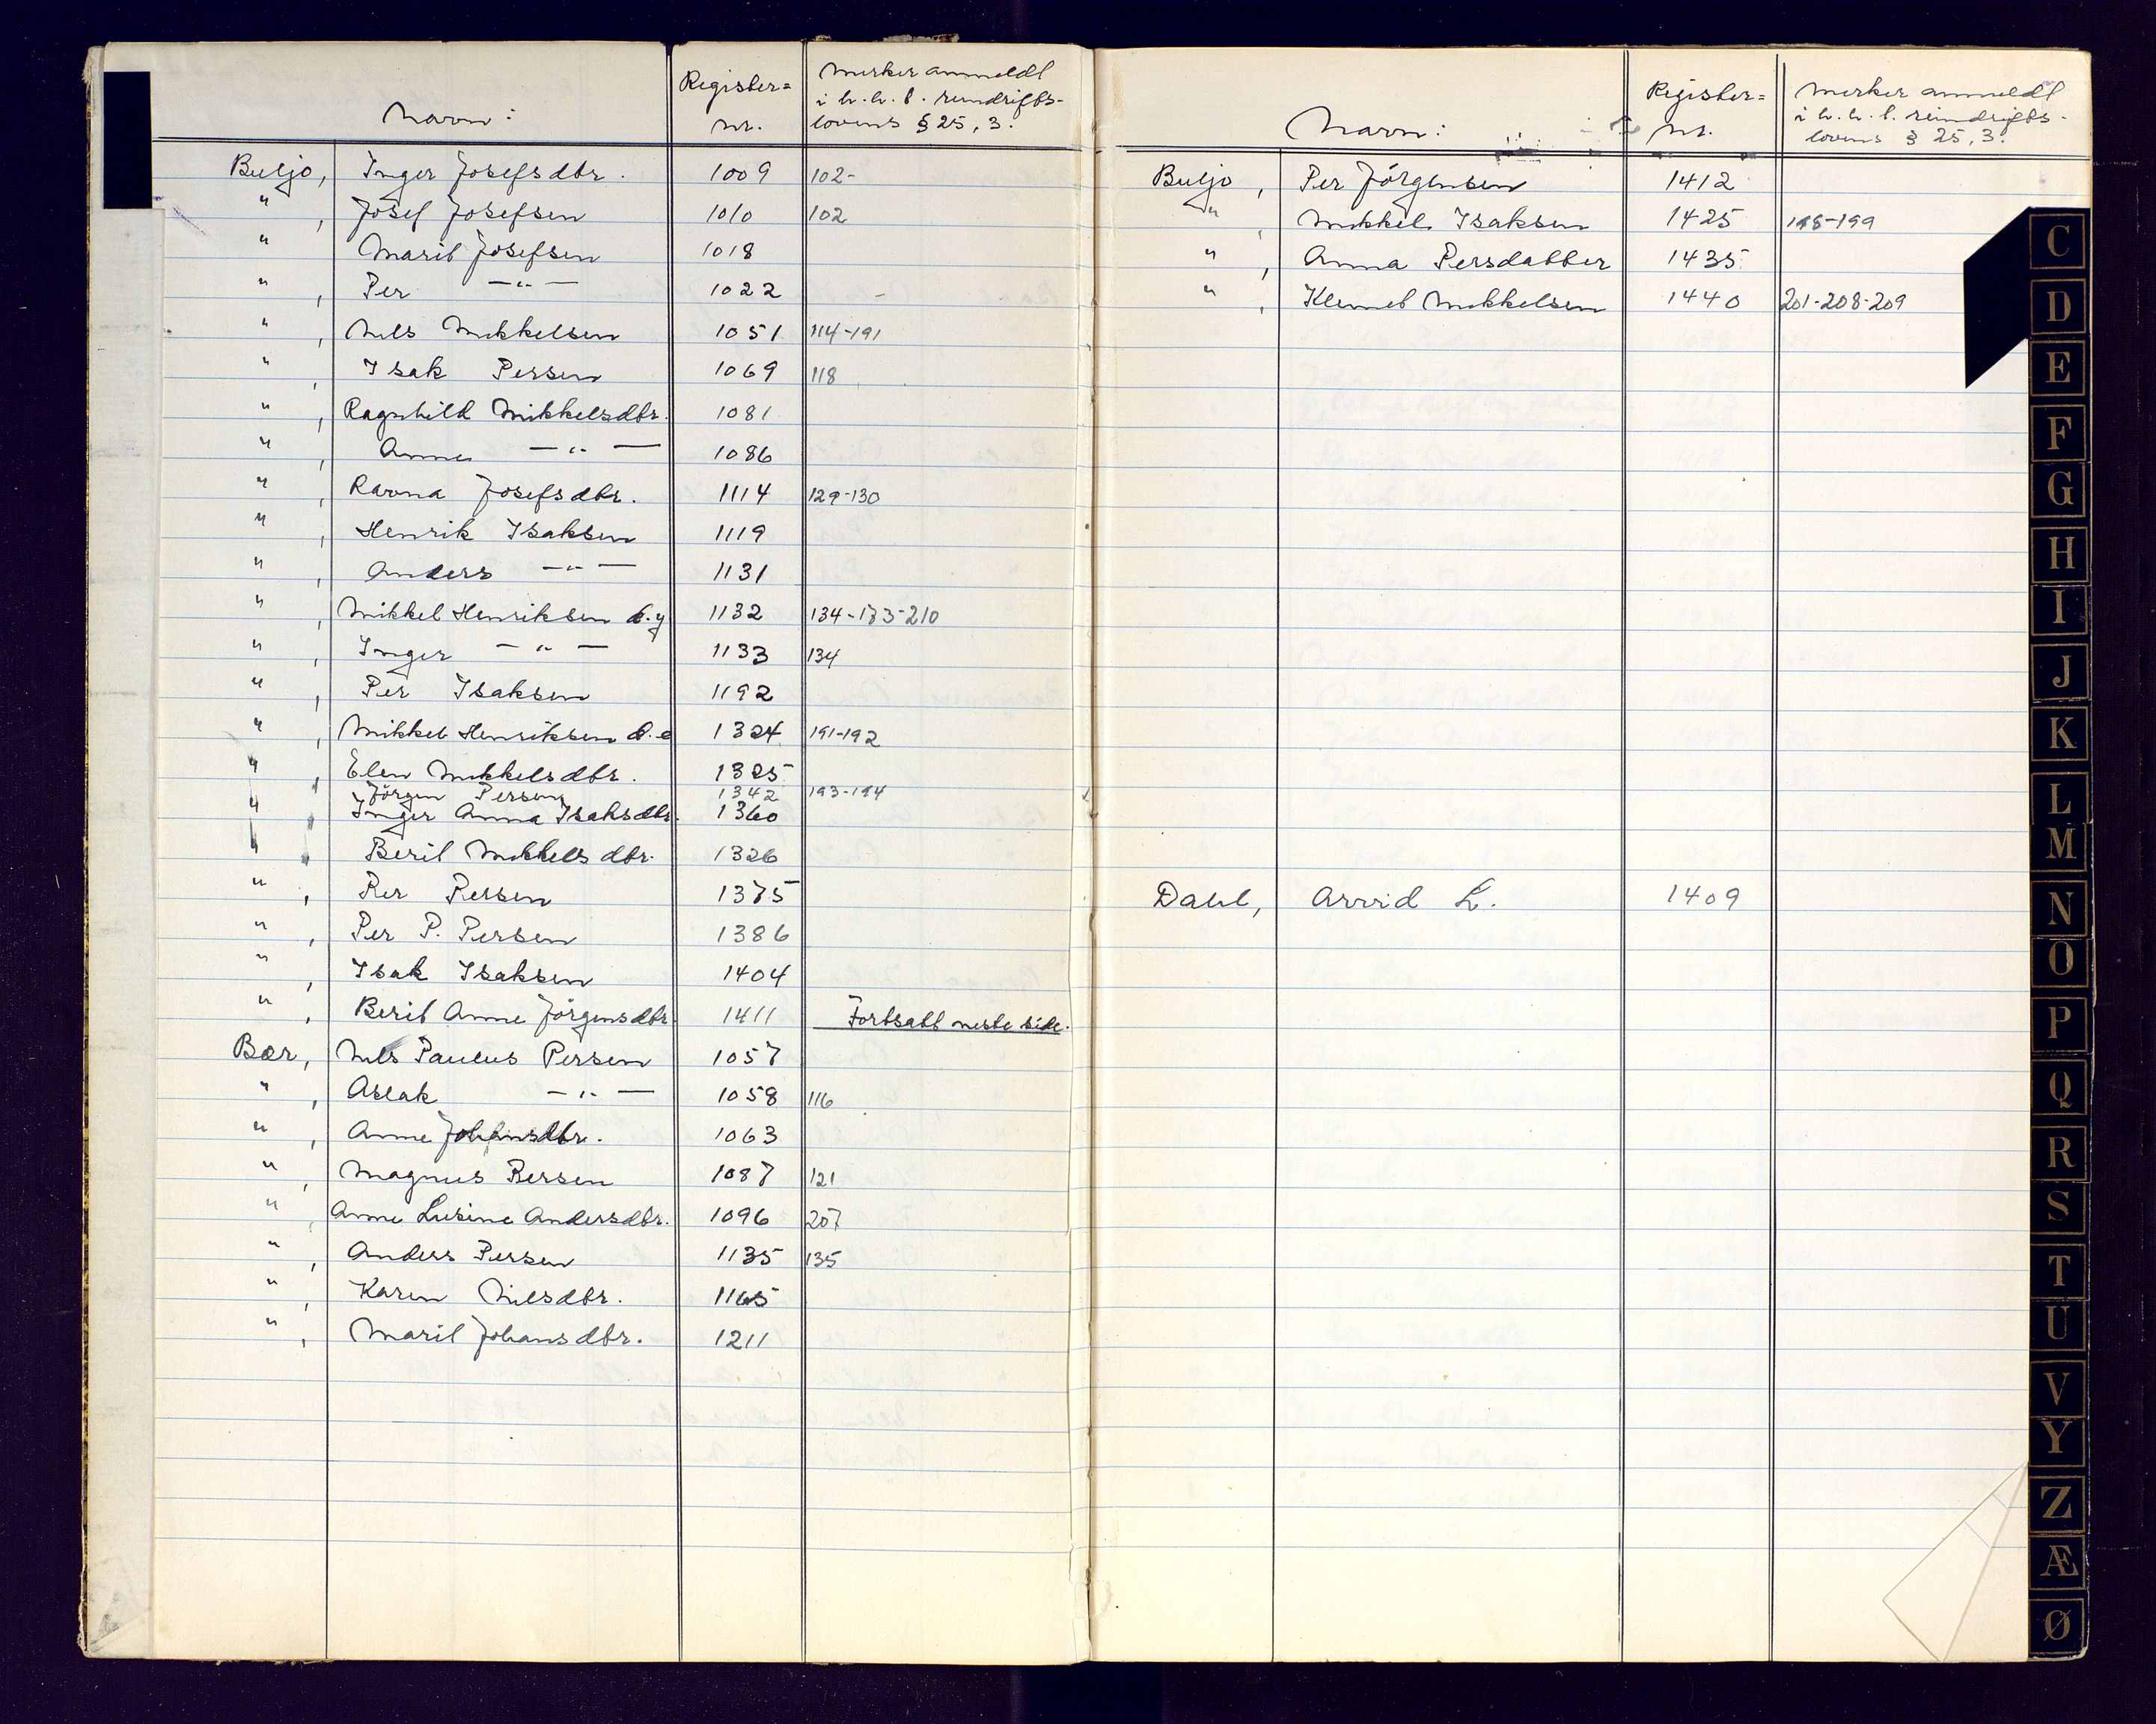 Navn: Register= nr. Merker anmeldt i h.h.t. reindrifts-lovens § 25, 3.
Buljo, Inger Josefsdtr. 1009 102-
" , Josef Josefsen 1010 102
" Marit Josefsen 1018
" , Per —"— 1022
" , Nils Mikkelsen 1051 114-191
" , Isak Persen 1069 118
" , Ragnhild Mikkelsdtr. 1081
" , Anne —"— 1086
" , Ravna Josefsdtr. 1114 129-130
" , Henrik Isaksen 1119
" , Anders —"— 1131
" , Mikkel Henriksen d.y 1132 134-183-210
" , Inger —"— 1133 134
" , Per Isaksen 1192
" , Mikkel Henriksen d.e 1324 191-192
" , Elen Mikkelsdtr. 1325
Jörgen Persen 1342 193-194
" , Inger Anna Isaksdtr. 1360
" , Berit Mikkelsdtr. 1326
" , Per Persen 1375
" , Per P. Persen 1386
" , Isak Isaksen 1404
" , Berit Anne Jörgensdtr 1411 Fortsatt neste side.
Bær, Nils Paulus Persen 1057
" , Aslak —"— 1058 116
" , Anne Johansdtr. 1063
" , Magnus Persen 1087 121
" , Anne Lusine Andersdtr. 1096 207
" , Anders Persen 1135 135
" , Karen Nilsdtr. 1165
" , Marit Johansdtr. 1211
Navn: Register= nr. Merker anmeldt i h.h.t. reindrifts-lovens § 25, 3.
Buljo, Per Jörgensen 1412
" , Mikkel Isaksen 1425 198-199
" , Anna Persdatter 1435
" , Klemet Mikkelsen 1440 201-208-209
Dahl, Arvid L. 1409
C
D
E
F
G
H
I
J
K
L
M
N
O
P
Q
R
S
T
U
V
Y
Z
Æ
Ø